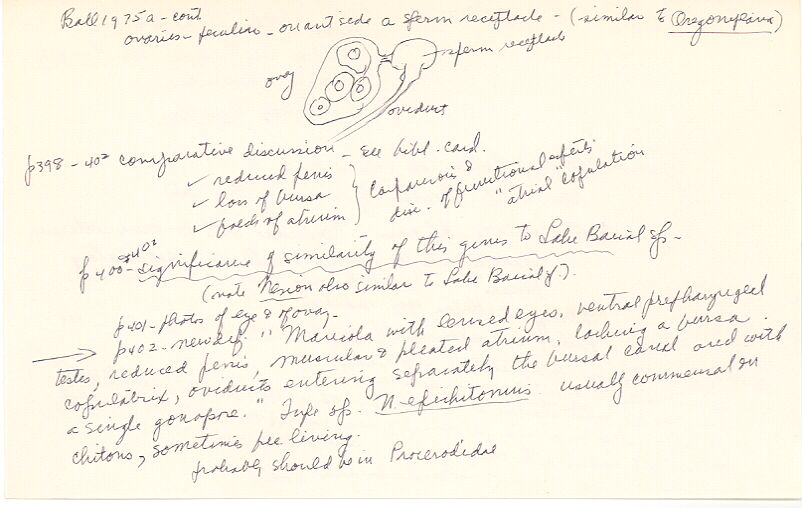 Ball 1975a - cont.
ovaries - peculiar - on antside a sperm receptacle - (similar to Oregoniplana)
sperm receptacle
ovary
oviduct
p398-402 comparative discussion - see bibl. card.
✓ reduced penis
✓ loss of bursa
✓ folds of atrium
comparisons & disc. of functional aspects "atrial" copulation
p400-402 - significance of similarity of this genus to Lake Baical sp.
(note Nexion also similar to Lake Baical sp.).
p401 - photos of eye & of ovary.
p402 - new def. "Maricola with lensed eyes, ventral prepharyngeal
testes, reduced penis, muscular & pleated atrium, lacking a bursa
copulatrix, oviducts entering separately the bursal canal and with
a single gonopore." Type sp. N. epichitonius usually commensal on
chitons, sometimes free living.
probably should be in Procerodidae